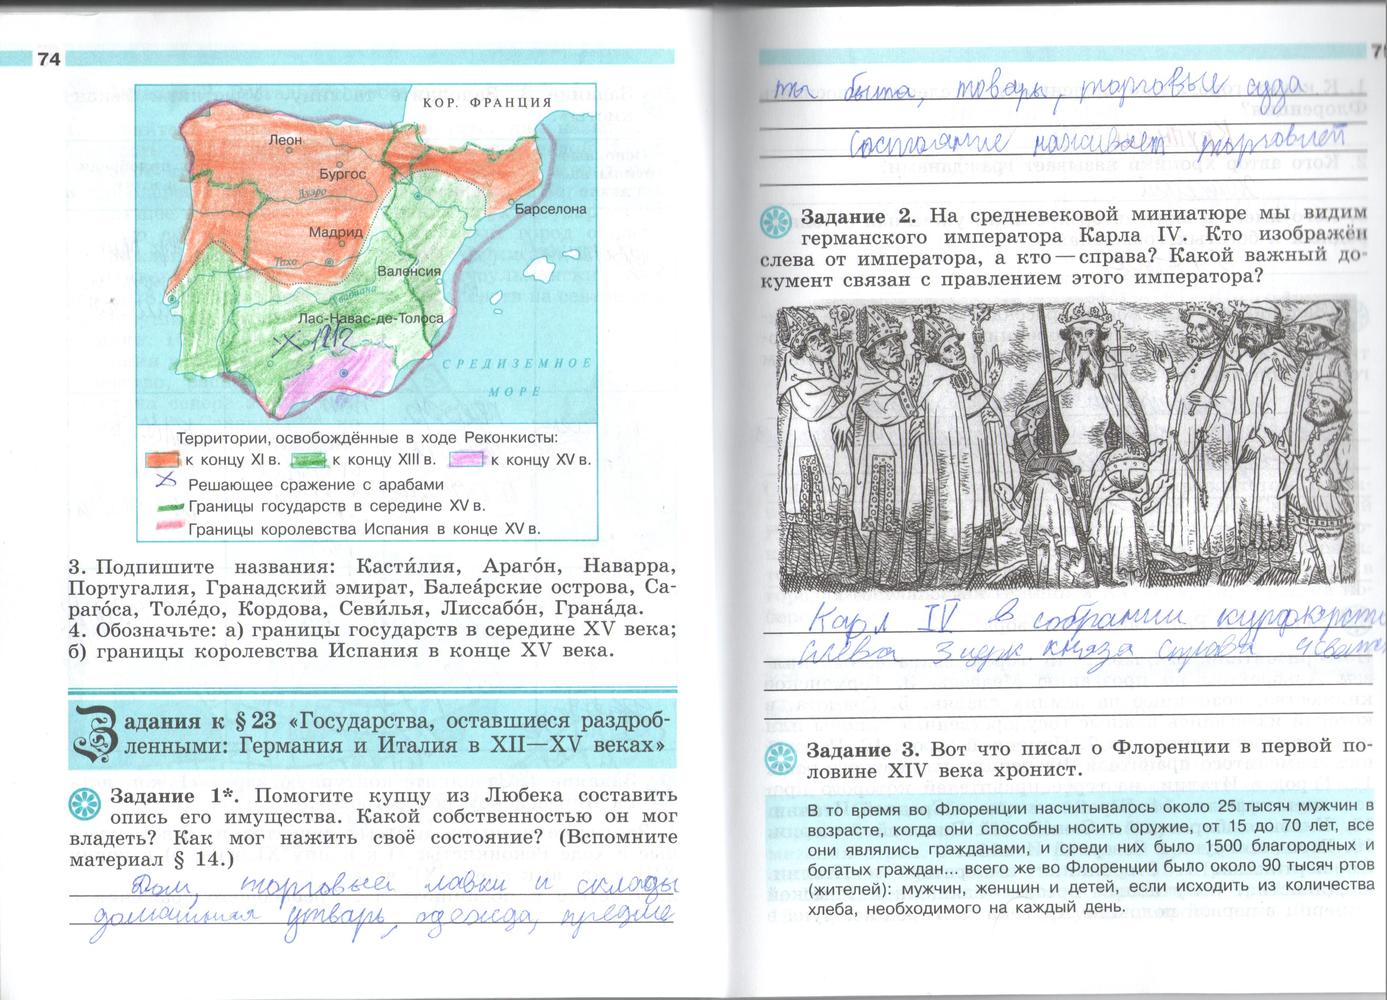 74
КОР. ФРАНЦИЯ
Леон
Бургос
Дуэро
Барселона
Мадрид
Тахо
Валенсия
Гвадиана
Лас-Навас-де-Толоса
X 1212
СРЕДИЗЕМНОЕ
МОРЕ
Территории, освобождённые в ходе Реконкисты:
к концу XI в. к концу XIII в. к концу XV в.
Решающее сражение с арабами
Границы государств в середине XV в.
Границы королевства Испания в конце XV в.
3. Подпишите названия: Касти́лия, Араго́н, Наварра,
Португалия, Гранадский эмират, Балеа́рские острова, Са-
раго́са, Толе́до, Кордова, Севи́лья, Лиссабо́н, Грана́да.
4. Обозначьте: а) границы государств в середине XV века;
б) границы королевства Испания в конце XV века.
Задания к § 23 «Государства, оставшиеся раздроб-
ленными: Германия и Италия в XII—XV веках»
Задание 1*. Помогите купцу из Любека составить
опись его имущества. Какой собственностью он мог
владеть? Как мог нажить своё состояние? (Вспомните
материал § 14.)
Дом, торговые лавки и склады
домашняя утварь, одежда, предме
ты быта, товары, торговые суда
Состояние наживает торговлей
Задание 2. На средневековой миниатюре мы видим
германского императора Карла IV. Кто изображён
слева от императора, а кто — справа? Какой важный до-
кумент связан с правлением этого императора?
Карл IV в собрании курфюрст
слева 3 дух князя справа 4 светс
Задание 3. Вот что писал о Флоренции в первой по-
ловине XIV века хронист.
В то время во Флоренции насчитывалось около 25 тысяч мужчин в
возрасте, когда они способны носить оружие, от 15 до 70 лет, все
они являлись гражданами, и среди них было 1500 благородных и
богатых граждан... всего же во Флоренции было около 90 тысяч ртов
(жителей): мужчин, женщин и детей, если исходить из количества
хлеба, необходимого на каждый день.